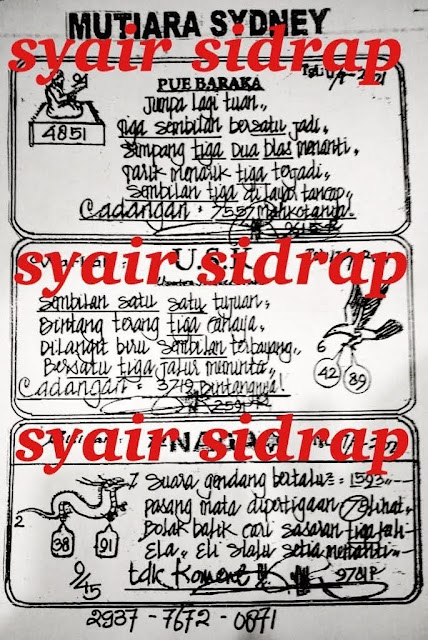 MUTIARA SYDNEY
syair sidrap
PUE BARAKA
2021
4851
Jumpa lagi tuan,,
Tiga sembilan bersatu jadi,
Simpang tiga dua blas menanti,
Tarik menarik tiga terjadi,
Sembilan tiga di layar tancap,,
Cadangan : 7557 Mahkotanya!
syair sidrap
U.S.K
Sembilan satu satu tujuan,
Bintang terang tiga cahaya,
Dilangit biru sembilan terbayang,,
Bersatu tiga jalur meminta,,
Cadangan : 3719 Bintangnya!
6
42
89
syair sidrap
NAGA
Suara gendang bertalu² = 1593,,
pasang mata dipertigaan 79 lihat,
Bolak balik cari sasaran tiga kali
Ela,, Eli slalu setia menanti
tdk Koment !! 9701P
2
98
91
9/45
2937 - 7672 - 0871